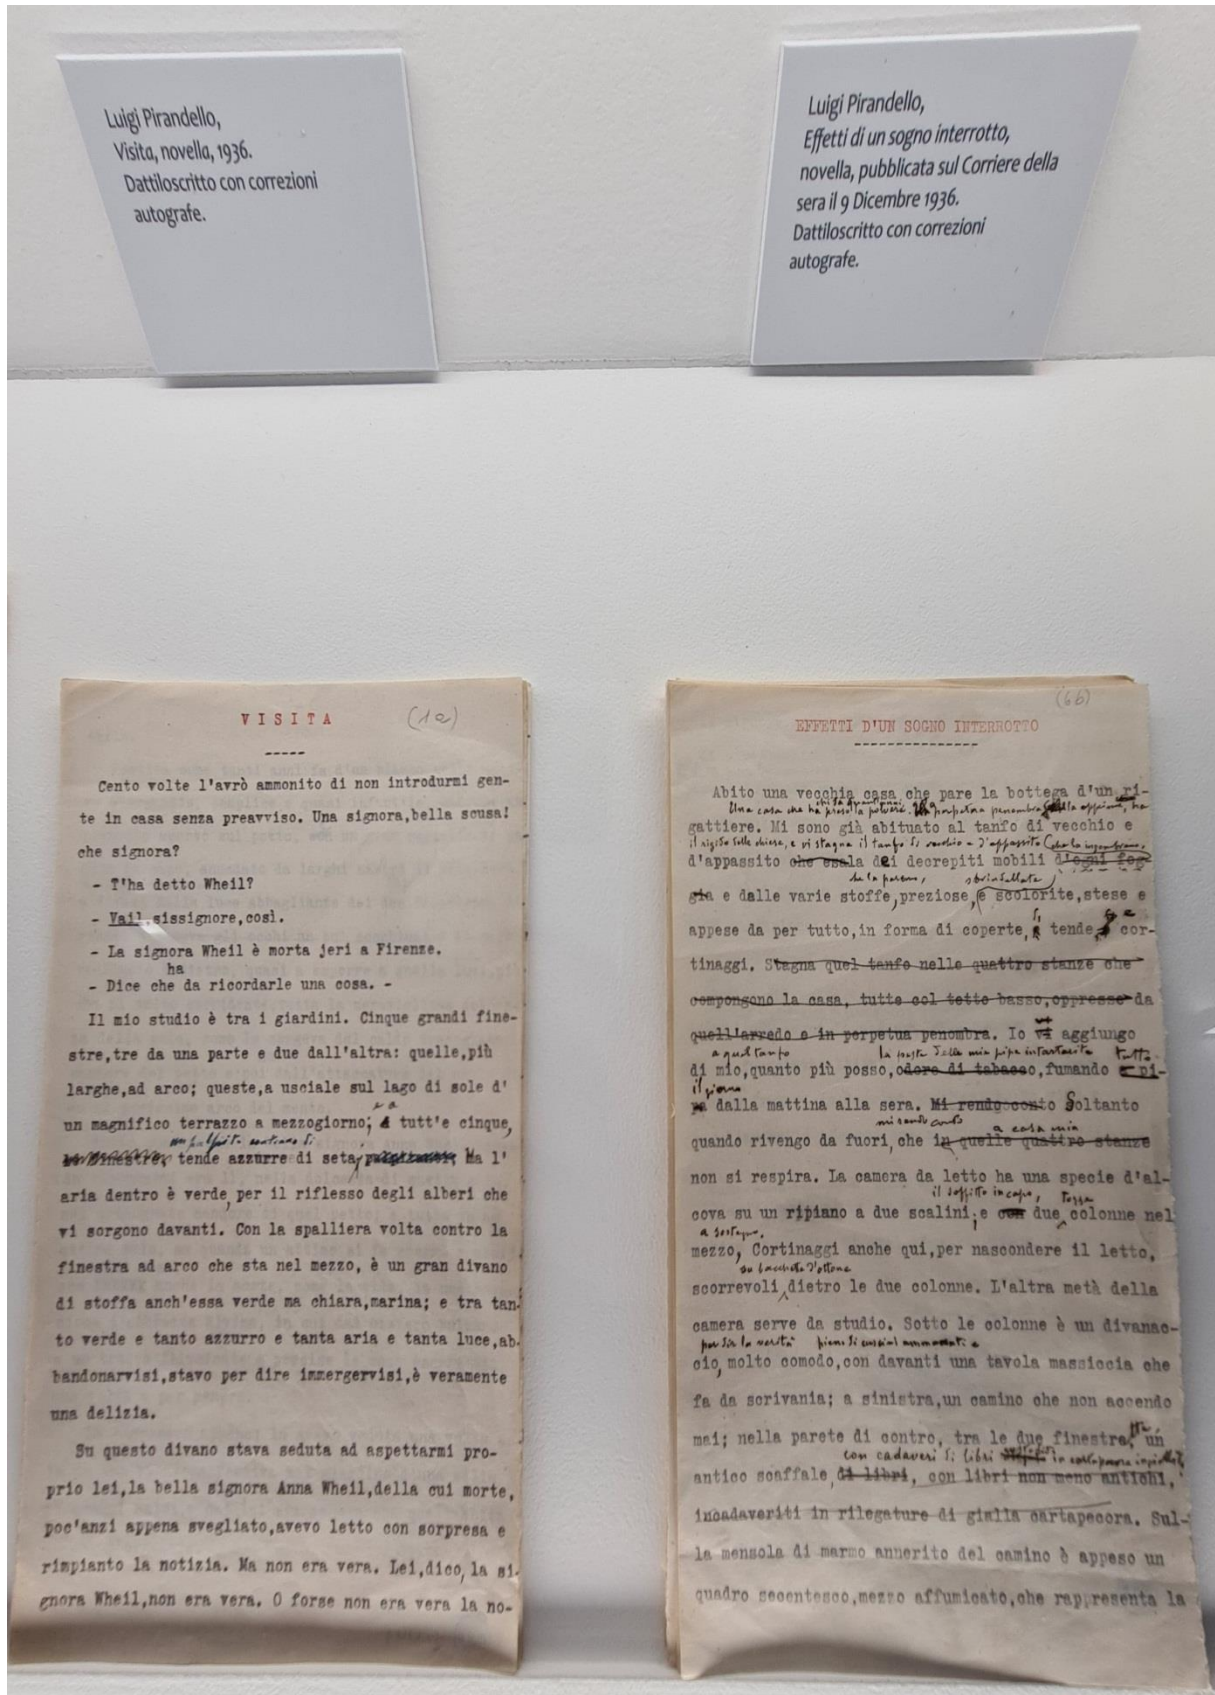 Luigi Pirandello,
Visita, novella, 1936.
Dattiloscritto con correzioni
autografe.
Luigi Pirandello,
Effetti di un sogno interrotto,
novella, pubblicata sul Corriere della
sera il 9 Dicembre 1936.
Dattiloscritto con correzioni
autografe.
VISITA (1a)
Cento volte l'avrò ammonito di non introdurmi gen-
te in casa senza preavviso. Una signora,bella scusa!
che signora?
- T'ha detto Wheil?
- Vail,sissignore,così.
- La signora Wheil è morta jeri a Firenze.
ha
- Dice che da ricordarle una cosa. -
Il mio studio è tra i giardini. Cinque grandi fine-
stre,tre da una parte e due dall'altra: quelle,più
larghe,ad arco; queste,a usciale sul lago di sole d'
un magnifico terrazzo a mezzogiorno; tutt'e cinque,
un palpito continuo di
tende azzurre di seta, Ma l'
aria dentro è verde, per il riflesso degli alberi che
vi sorgono davanti. Con la spalliera volta contro la
finestra ad arco che sta nel mezzo, è un gran divano
di stoffa anch'essa verde ma chiara,marina; e tra tan-
to verde e tanto azzurro e tanta aria e tanta luce,ab-
bandonarvisi,stavo per dire immergervisi,è veramente
una delizia.
Su questo divano stava seduta ad aspettarmi pro-
prio lei,la bella signora Anna Wheil,della cui morte,
poc'anzi appena svegliato,avevo letto con sorpresa e
rimpianto la notizia. Ma non era vera. Lei,dico, la si-
gnora Wheil,non era vera. O forse non era vera la no-
(6b)
EFFETTI D'UN SOGNO INTERROTTO
Abito una vecchia casa che pare la bottega d'un ri-
Una casa che ha preso polvere. perpetua penombra ha
gattiere. Mi sono già abituato al tanfo di vecchio e
il rigido delle chiese, e vi stagna il tanfo di vecchio e d'appassito
d'appassito che esala dei decrepiti mobili d'ogni fog-
che la parano, sbrindellate
gia e dalle varie stoffe,preziose, e scolorite,stese e
appese da per tutto,in forma di coperte, tende, cor-
tinaggi. Stagna quel tanfo nelle quattro stanze che
compongono la casa, tutte col tetto basso,oppresse da
quell'arredo e in perpetua penombra. Io vi aggiungo
a quel tanfo la peste della mia pipa intartarita tutto
di mio,quanto più posso,odore di tabacco,fumando e pi-
il giorno
pa dalla mattina alla sera. Mi rendo conto Soltanto
mi rendo conto a casa mia
quando rivengo da fuori, che in quelle quattro stanze
non si respira. La camera da letto ha una specie d'al-
il soffitto in capo, tozze
cova su un ripiano a due scalini; e con due colonne nel
a sostegno,
mezzo, Cortinaggi anche qui,per nascondere il letto,
su bacchette d'ottone
scorrevoli dietro le due colonne. L'altra metà della
camera serve da studio. Sotto le colonne è un divanac-
per dir la verità pieno di cuscini ammontati e
cio, molto comodo,con davanti una tavola massiccia che
fa da scrivania; a sinistra,un camino che non accendo
mai; nella parete di contro, tra le due finestrette, un
con cadaveri di libri in cartapecora
antico scaffale, di libri, con libri non meno antichi,
incadaveriti in rilegature di gialla cartapecora. Sul-
la mensola di marmo annerito del camino è appeso un
quadro secentesco,mezzo affumicato,che rappresenta la